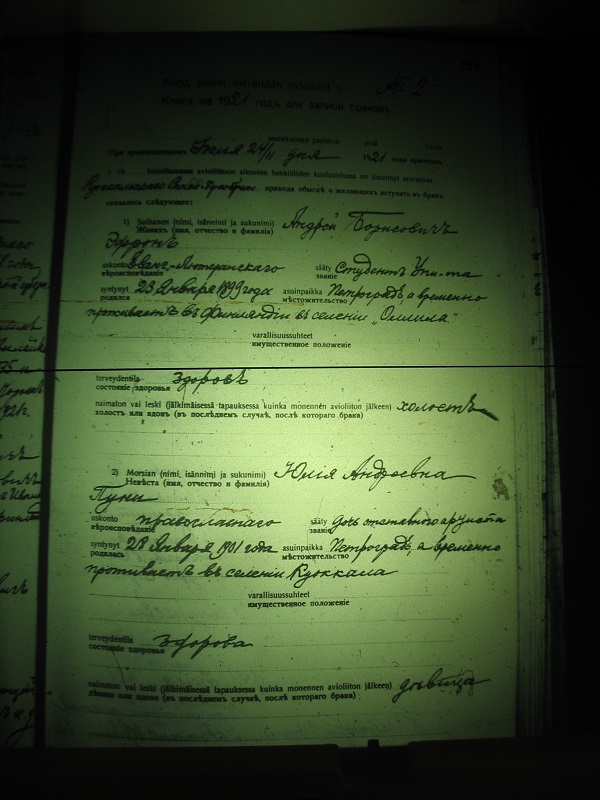 Kirja, johon merkitään avioliitot v. № 2
Книга на 1921 годъ для записи браковъ.
seurakunnan papiston
При произведенномъ Іюля 24/11 дня 1921 года причтомъ
v. 19 toimittamassa avioliittoon aikovien henkilöiden kuulustelussa on ilmennyt seuraavaa
приходa обыскѣ о желающихъ вступить въ бракъ
оказалось слѣдующее:
1) Sulhanen (nimi, isännimi ja sukunimi)
Женихъ (имя, отчество и фамилія) Андрей Борисовичъ
Эфронъ
uskonto sääty
вѣроисповѣданіе Еванг.-Лютеранскаго званіе Студентъ Уни-та
syntynyt asuinpaikka
родился 23 Января 1899 года мѣстожительство Петроградъ, а временно
проживаетъ въ Финляндіи въ селеніи „Оллила"
varallisuussuhteet
имущественное положеніе
terveydentila
состояніе здоровья Здоровъ
naimaton vai leski (jälkimäisessä tapauksessa kuinka monennen avioliiton jälkeen) холостъ
холостъ или вдовъ (въ послѣднемъ случаѣ, послѣ котораго брака)
2) Morsian (nimi, isännimi ja sukunimi)
Невѣста (имя, отчество и фамилія) Юлія Андреевна
Пуни
uskonto sääty
вѣроисповѣданіе православнаго званіе дочь отставного артиста
syntynyt asuinpaikka
родилась 28 Января 1901 года мѣстожительство Петроградъ, а временно
проживаетъ въ селеніи Куоккала
varallisuussuhteet
имущественное положеніе
terveydentila
состояніе здоровья Здорова
naimaton vai leski (jälkimäisessä tapauksessa kuinka monennen avioliiton jälkeen) дѣвица
дѣвица или вдова (въ послѣднемъ случаѣ, послѣ котораго брака)